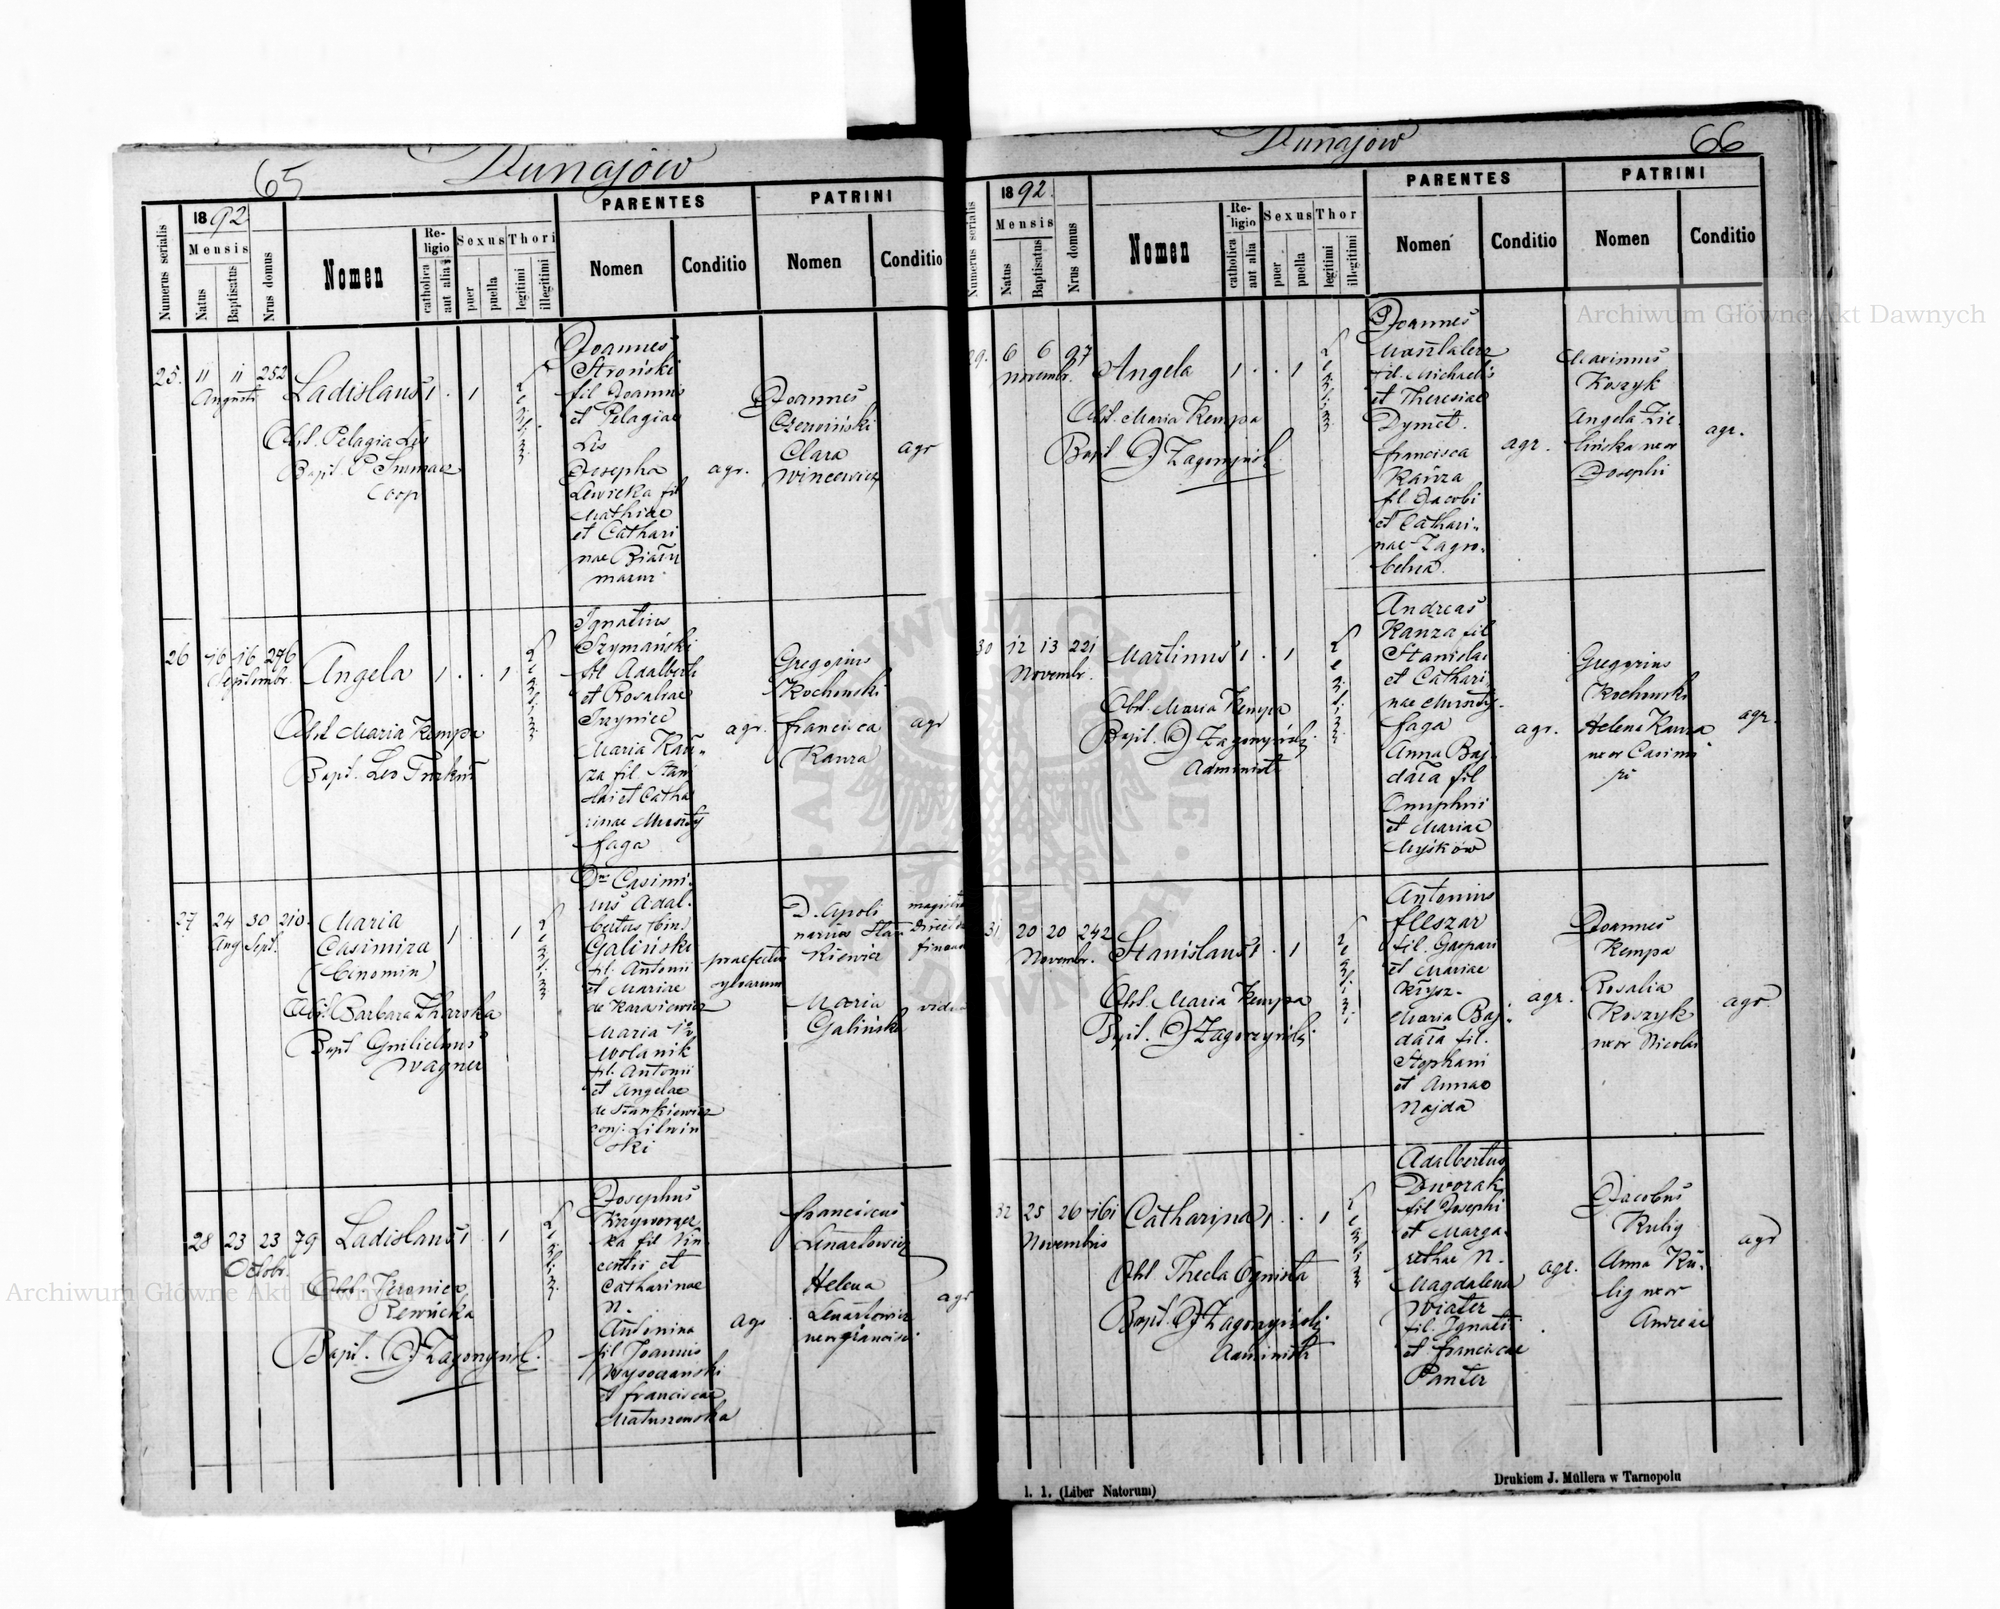 65
Dunajów
Numerus serialis
1892
Mensis
Natus
Baptisatus
Nrus domus
Nomen
Religio
catholica
aut alia
Sexus
puer
puella
Thori
legitimi
illegitimi
PARENTES
Nomen
Conditio
PATRINI
Nomen
Conditio
25.
11
11
252
Augusti
Ladislaus
1
.
1
Obst. Pelagia Lis
Bapt. P
Coop
Joannes
Stroński
fil Joannis
et Pelagiae
Lis
Josepha
Lewicka fil
Mathiae
et Cathari
nae
agr.
Joannes
Czerwiński
Clara
Wincewicz
agr
26
16
16
276
Septembr.
Angela
1
.
.
1
Obst Maria Kempa
Bapt. Leo
Ignatius
Szymański
fil Adalberti
et Rosaliae
Maria Kań-
za fil Stani
slai et Catha
rinae
faga
agr.
Gregorius
Kochonski
francisca
Kanza
agr
27
24
30
210.
Aug
Sept.
Maria
Casimira
(binomin)
1
.
1
Obst. Barbara
Bapt Guilielmus
Wagner
Dns Casimi-
rus Adal-
bertus (bin.
Galiński
fil. Antonii
et Mariae
de Karasiewicz
Maria
Wolanik
fil. Antonii
et Angelae
de Stankiewicz
conj. Litwin
ski
praefectus
sylvarum
D. Apoli
narius Stan
kiewicz
Maria
Galińska
28
23
23
79
Octobr.
Ladislaus
1
.
1
Obst. Veronica
Rewucka
Bapt. J Zagorzyński
Josephus
ka fil Vin
centii et
Catharinae
N.
Antonina
fil Joannis
Wysoczanski
et franciscae
Matuszewska
agr
franciscus
Lenartowicz
Helena
Lenartowicz
uxor francisci
agr
Dunajów
66
Numerus serialis
1892.
Mensis
Natus
Baptisatus
Nrus domus
Nomen
Religio
catholica
aut alia
Sexus
puer
puella
Thor
legitimi
illegitimi
PARENTES
Nomen
Conditio
PATRINI
Nomen
Conditio
6
6
97
Novembr.
Angela
1
.
.
1
Obst. Maria Kempa
Bapt. J Zagorzyński
Joannes
fil. Michaelis
et Theresiae
Dymet.
francisca
Kańza
fil Jacobi
et Cathari-
nae Zagro-
belna
agr.
Maximus
Koszyk
Angela Zie-
lińska uxor
Josephi
agr.
30
12
13
221
Novembr.
Martinus
1
.
1
Obst. Maria Kempa
Bapt. J Zagorzyński
Administr
Andreas
Kańza fil
Stanislai
et Cathari-
nae
faga
Anna Baj-
data fil
Onuphrii
et Mariae
Myśków
agr.
Gregorius
Kochonski
Helena Kanza
uxor Casimi
ri
agr.
31
20
20
242
Novembr.
Stanislaus
1
.
1
Obst. Maria Kempa
Bapt. J Zagorzyński
Antonius
fil. Gaspari
et Mariae
Maria Baj-
data fil.
Stephani
et Annae
Najda
agr.
Joannes
Kempa
Rosalia
Koszyk
uxor Nicolai
agr.
32
25
26
161
Novembris
Catharina
1
.
.
1
Obst Thecla Ognista
Bapt. J Zagorzyński
Administr
Adalbertus
Dworak
fil Josephi
et Marga-
rethae N.
Magdalena
Wiater
fil. Ignatii
et franciscae
Panter
agr.
Jacobus
Kulig
Anna Ku-
lig uxor
Andreae
agr
l. 1. (Liber Natorum)
Drukiem J. Müllera w Tarnopolu
Archiwum Główne Akt Dawnych
Archiwum Główne Akt Dawnych